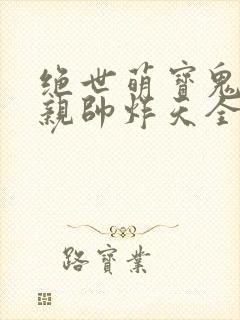 绝世萌寶鬼
親帥炸天全
路寶業